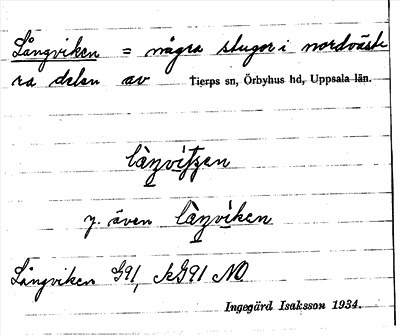 Långviken = några stugor i nordväst
ra delen av Tierps sn, Örbyhus hd, Uppsala län.
y. även
Långviken G91, SkG91 NO.
Ingegärd Isaksson 1934.